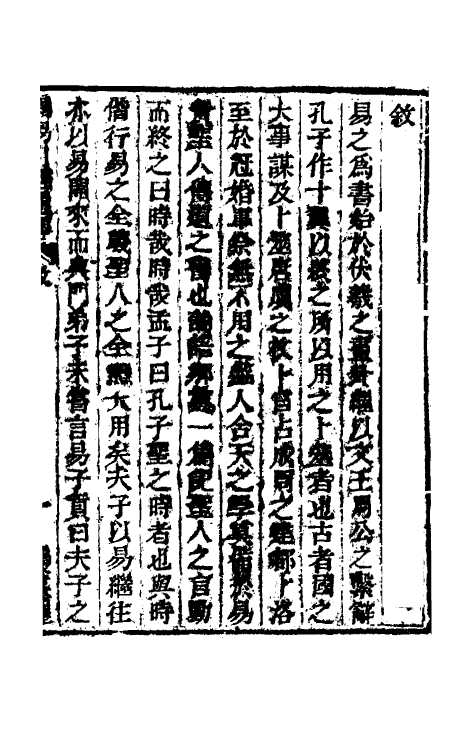 敘
易之為書始於伏羲之畫卦繼以文王周公之繫辭
孔子作十翼以終之所以用之卜筮者也古者國之
大事謀及卜筮唐虞之枚卜官占成周之建都卜洛
至於冠婚軍祭無不用之聖人合天之學莫備於易
聖人傳道之書也論語鄉黨一篇記聖人之言動
而終之曰時哉時哉孟子曰孔子聖之時者也與時
偕行易之全義聖人之全體大用矣夫子以易繼往
亦以易開來而與門弟子未嘗言易子貢曰夫子之